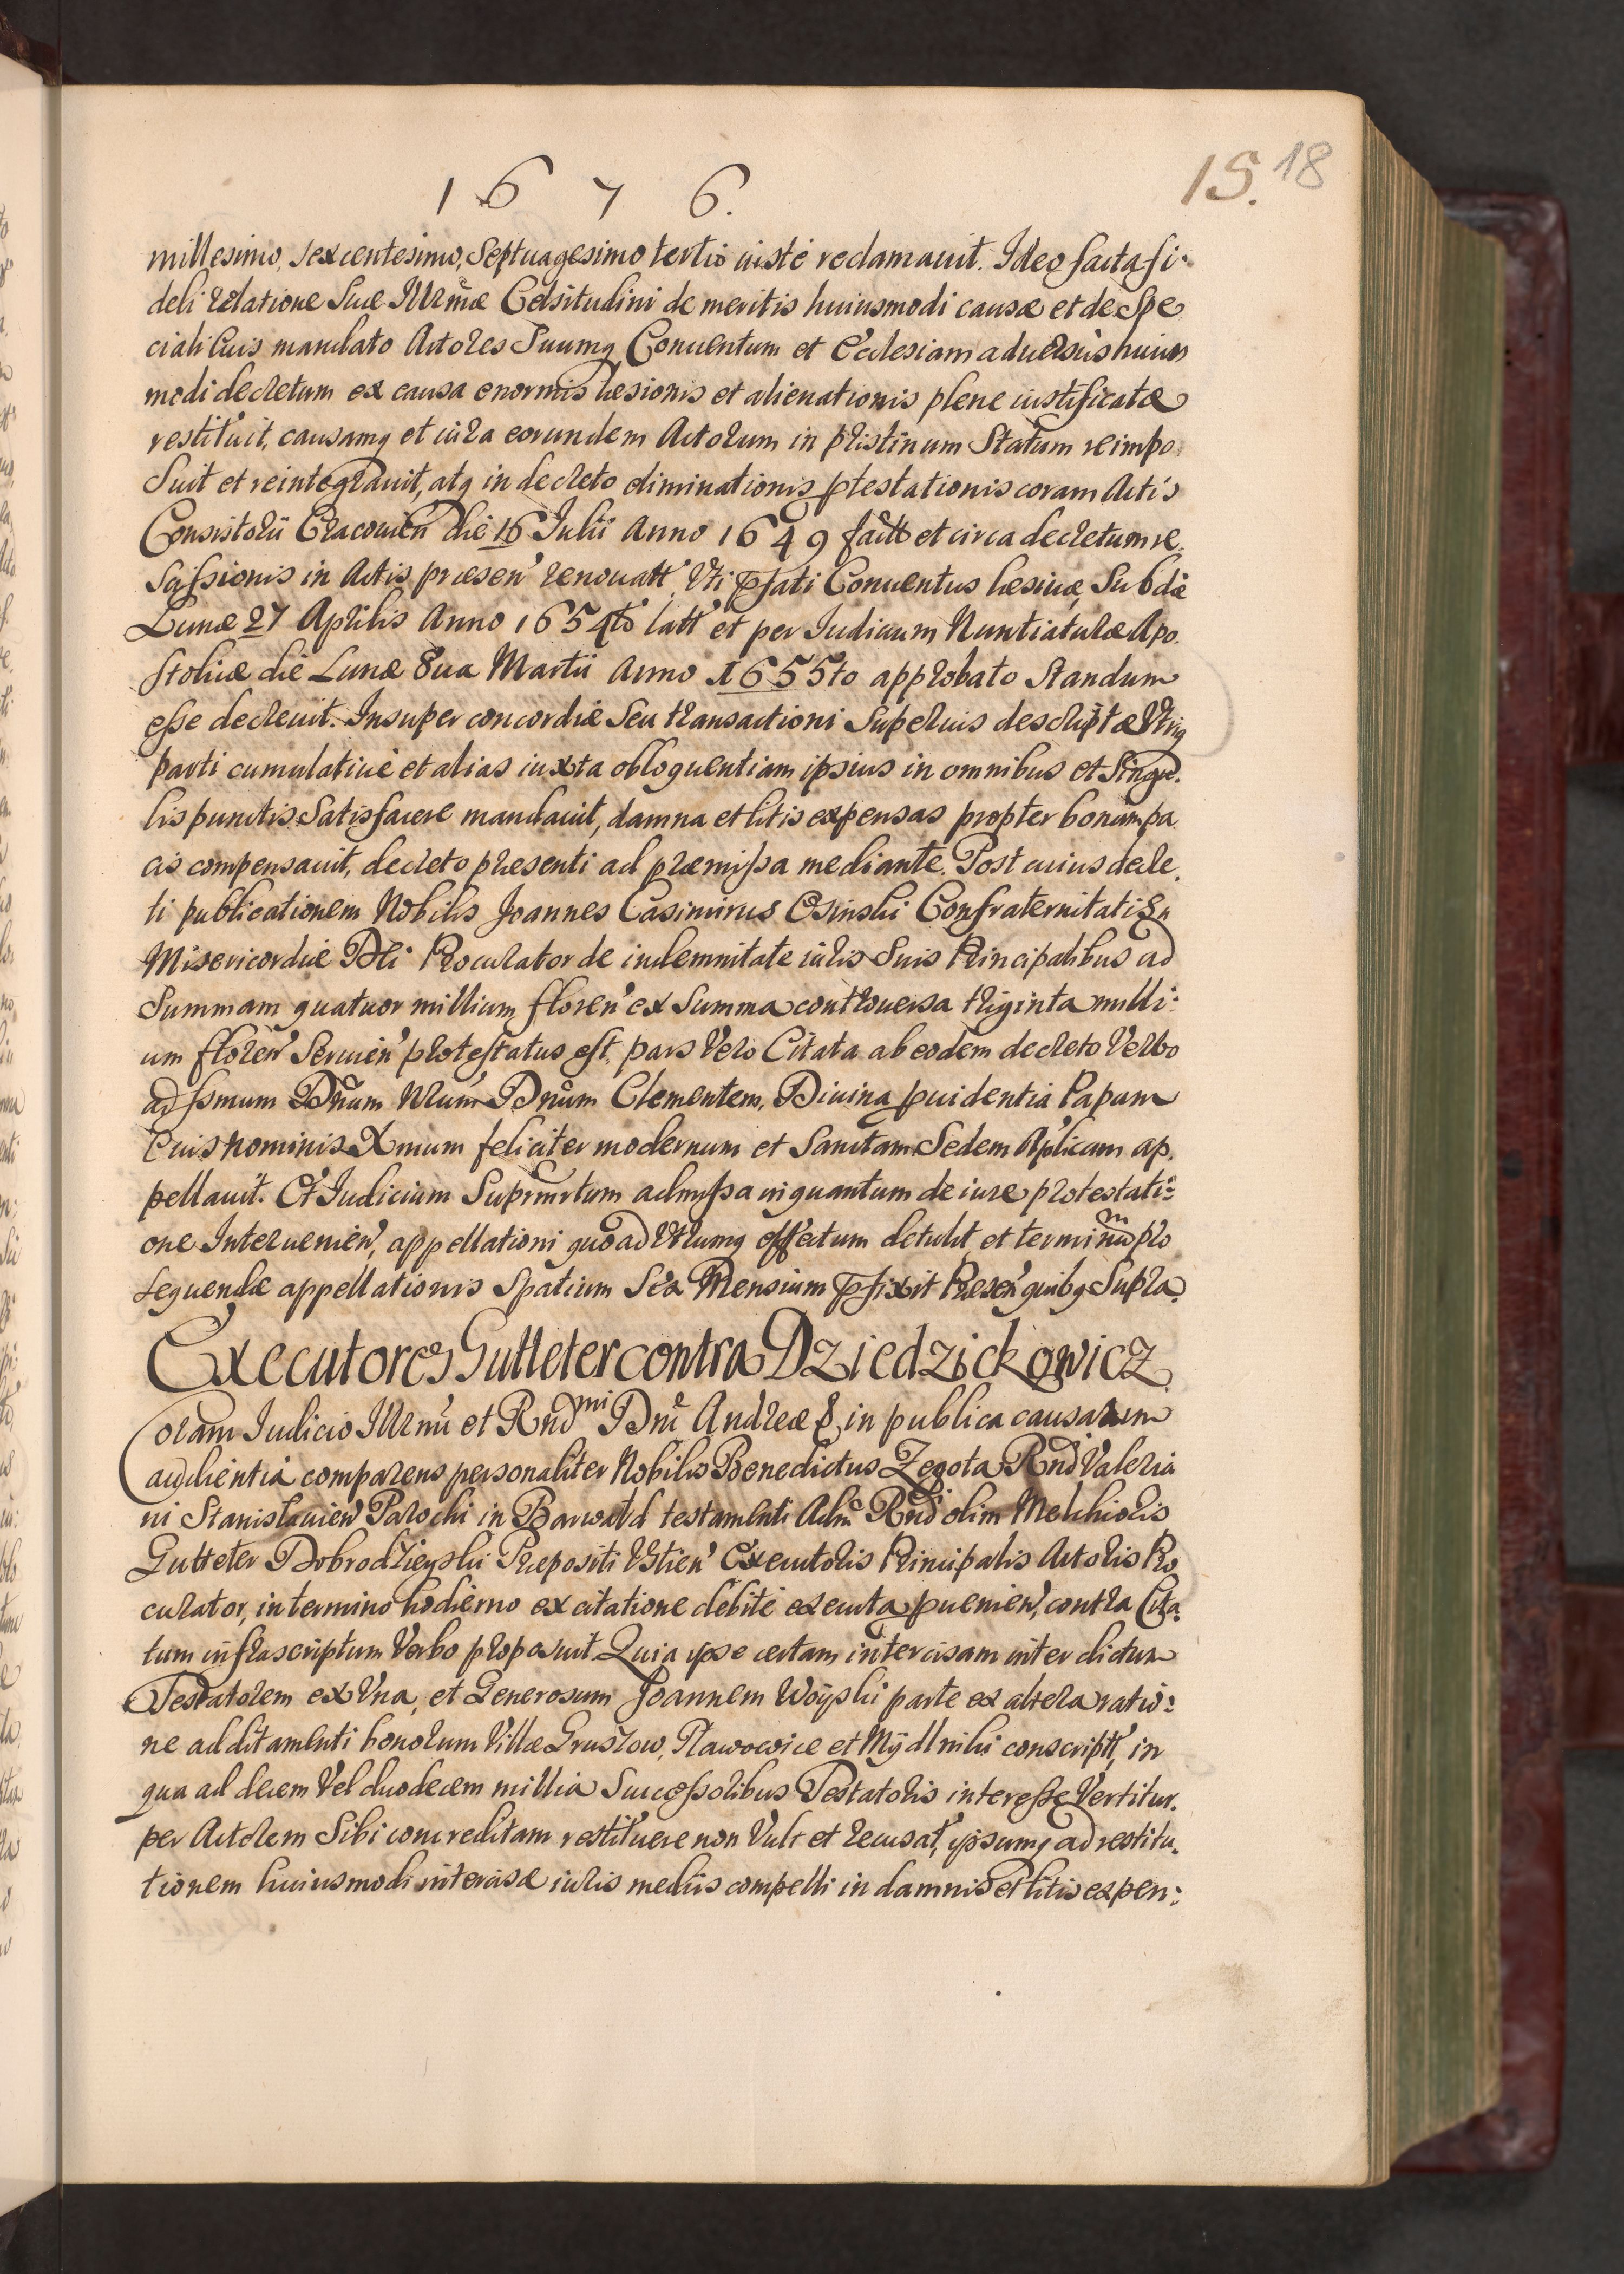 1 6 7 6.
15. 18
millesimo, sexcentesimo, Septuagesimo tertio iuste reclamauit. Ideo facta fi-
deli Relatione Suæ Illrmæ Celsitudini de meritis huiusmodi causæ et de Spe
ciali Eius mandato Actores Suumq Conuentum et Ecclesiam aduersus huius
modi decretum ex causa enormis læsionis et alienationis plene iustificatæ
restituit, causamq et iura eorundem Actorum in pristinum Statum reimpo
Suit et reintegrauit, atq in decreto eliminationis ptestationis coram Actis
Consistorii Cracouien die 16 Julii Anno 1649 factt et circa decretum re
scissionis in Actis præsen renouatt, Vti pfati Conuentus læsiuæ, Sub die
Lunæ 27 Aprilis Anno 1654to latt et per Iudicium Nuntiaturæ Apo
stolicæ die Lunæ 8ua Martii Anno 1655to approbato Standum
esse decreuit. Insuper concordiæ Seu transactioni Superius descriptæ Vtriq
parti cumulatiue et alias iuxta obloquentiam ipsius in omnibus et Singu.
lis punctis Satisfacere mandauit, damna et litis expensas propter bonum pa
cis compensauit, decreto præsenti ad præmissa mediante. Post cuius decre
ti publicationem Nobilis Joannes Casimirus Osinski Confraternitatis
Misericordiæ Dei Procurator de indemnitate iuris Suis Principalibus ad
Summam quatuor millium floren ex Summa controuersa triginta milli-
um floren Seruien protestatus est, pars Vero Citata ab eodem decreto Verbo
ad ssmum Dnum Nrum Dnum Clementem, Diuina puidentia Papam
Eius nominis Xmum feliciter modernum et Sanctam Sedem Aplicam ap.
pellauit. Et Iudicium Suprmrtum admissa inquantum de iure protestati-
one Interuenien, appellationi quoad Vtrumq effectum detulit, et terminum pro
sequendæ appellationis Spatium Sex Mensium pfixit Præsen quibq Supra.
Executores Gutteter contra Dziedzickowicz
Coram Iudicio Illrmi et Rndmi Dni Andreæ &, in publica causarum
audientia comparens personaliter Nobilis Benedictus Zegota Rndi Valeria
ni Stanislauien Parochi in Barwald testamenti Adm Rndi olim Melchioris
Gutteter Dobrodzieyski Præpositi Vstien Executoris Principalis Actoris Pro
curator, in termino hodierno ex citatione debite executa puenien, contra Cita
tum infrascriptum Verbo proposuit. Quia ipse certam intercisam inter dictum
Testatorem ex Vna, et Generosum Joannem Woyski parte ex altera ratio-
ne additamenti bonorum Villæ Gruszow, Pławowice et Mydlniki conscriptt, in
qua ad decem Vel duodecem millia Successoribus Testatoris interesse Vertitur.
per Actorem Sibi concreditam restituere non Vult et recusat, ipsumq ad restitu.
tionem huiusmodi intercisæ iuris mediis compelli in damnis et litis expen-